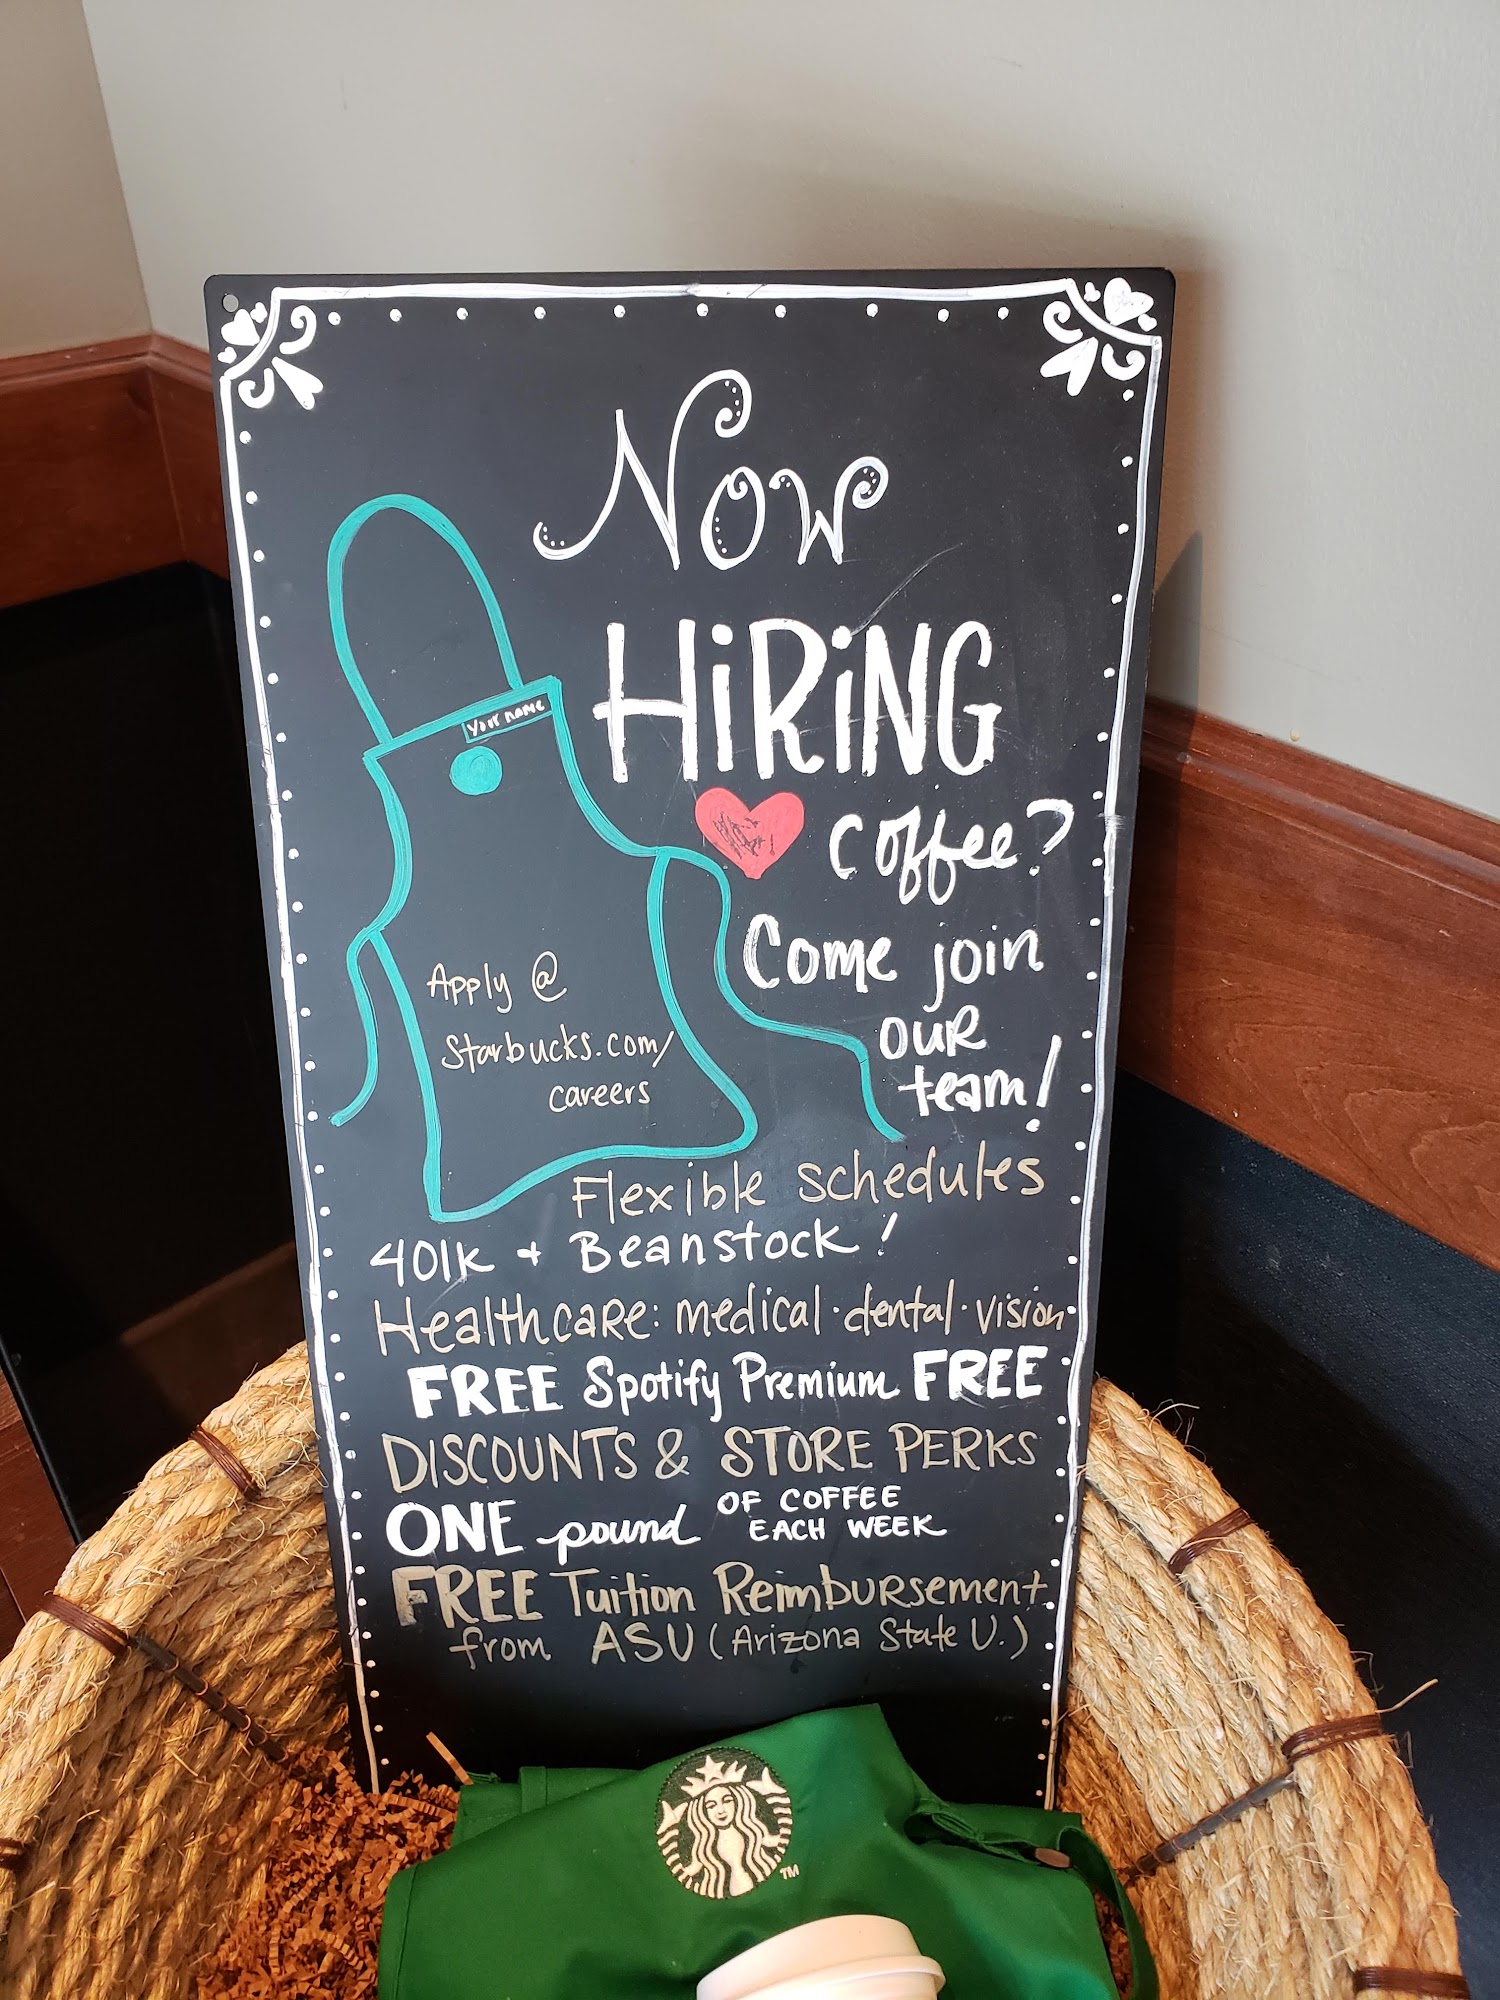 Now
HiRiNG
coffee?
your name
Come join
our
team!
Apply @
Starbucks.com/
careers
Flexible schedules
401k + Beanstock!
Healthcare: medical · dental · vision
FREE Spotify Premium FREE
DISCOUNTS & STORE PERKS
ONE pound OF COFFEE
EACH WEEK
FREE Tuition Reimbursement
from ASU (Arizona State U.)
TM